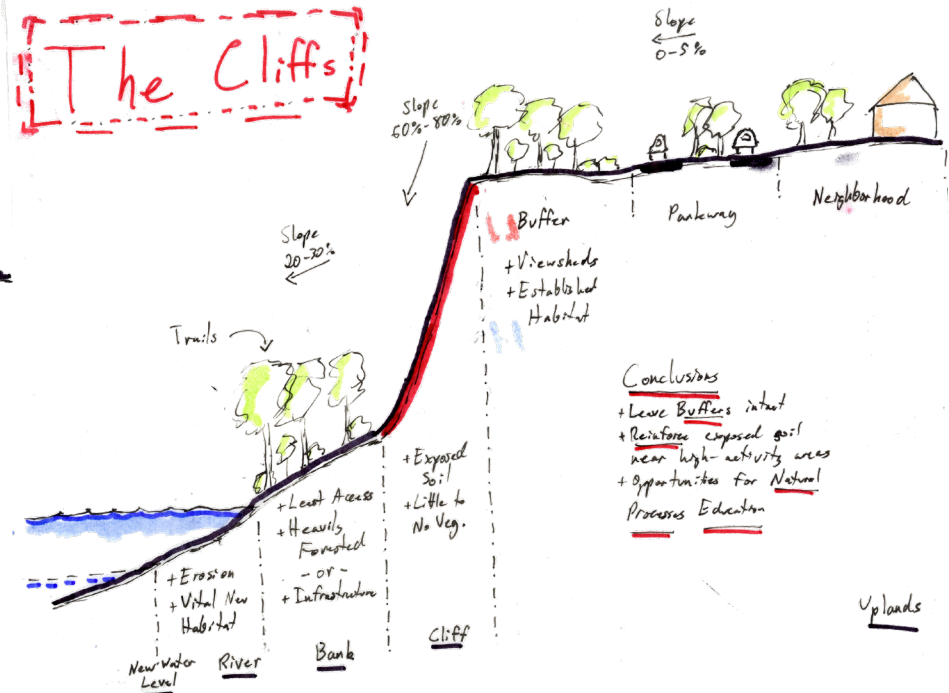 The Cliffs
Slope
0-5%
Slope
60%-80%
Slope
20-30%
Trails
Buffer
+ Viewsheds
+ Established
Habitat
Parkway
Neighborhood
Conclusions
+ Leave Buffers intact
+ Reinforce exposed soil
near high-activity areas
+ Opportunities for Natural
Processes Education
+ Exposed
Soil
+ Little to
No Veg.
+ Least Access
+ Heavily
Forested
- or -
+ Infrastructure
+ Erosion
+ Vital New
Habitat
New Water
Level
River
Bank
Cliff
Uplands